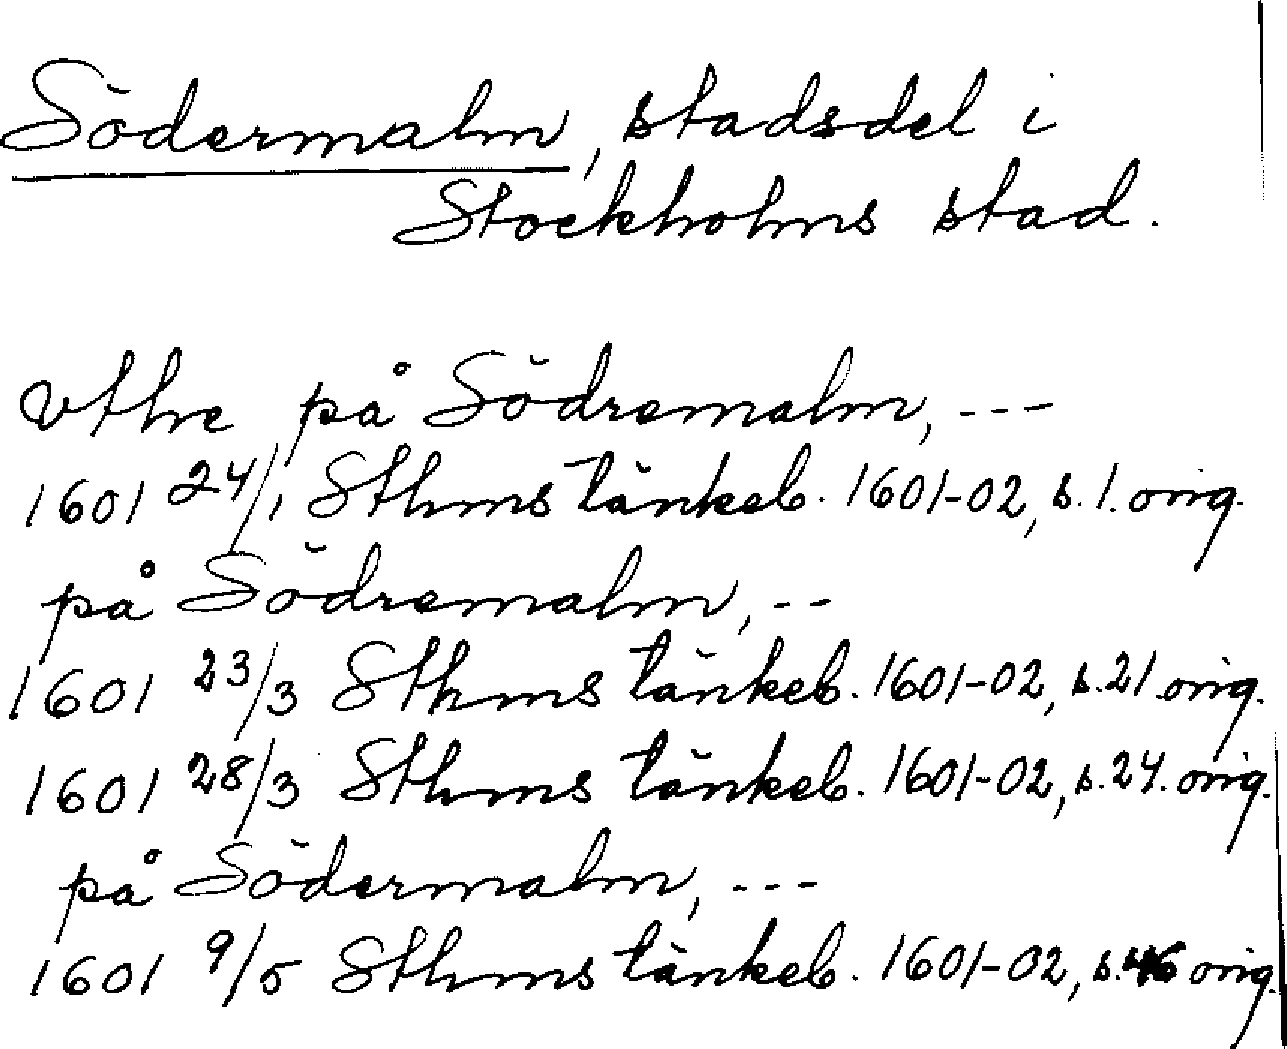 Södermalm, stadsdel i
Stockholms stad.
vthe på Södremalm, ---
1601 24/1 Sthms tänkeb. 1601-02, s. 1. orig.
på Södremalm, --
1601 23/3 Sthms tänkeb. 1601-02, s. 21. orig.
1601 28/3 Sthms tänkeb. 1601-02, s. 24. orig.
på Södermalm, ---
1601 9/5 Sthms tänkeb. 1601-02, s. 46 orig.